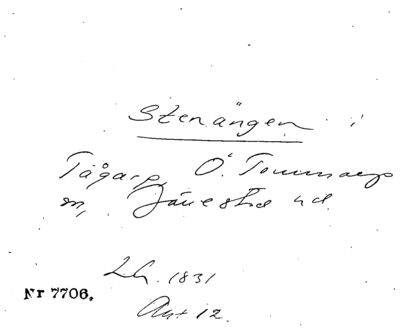 Stenängen i
Tågarp, Ö. Tommarp
sn, Järrestad hd
Lh. 1831
Nr 7706.
Akt 12.